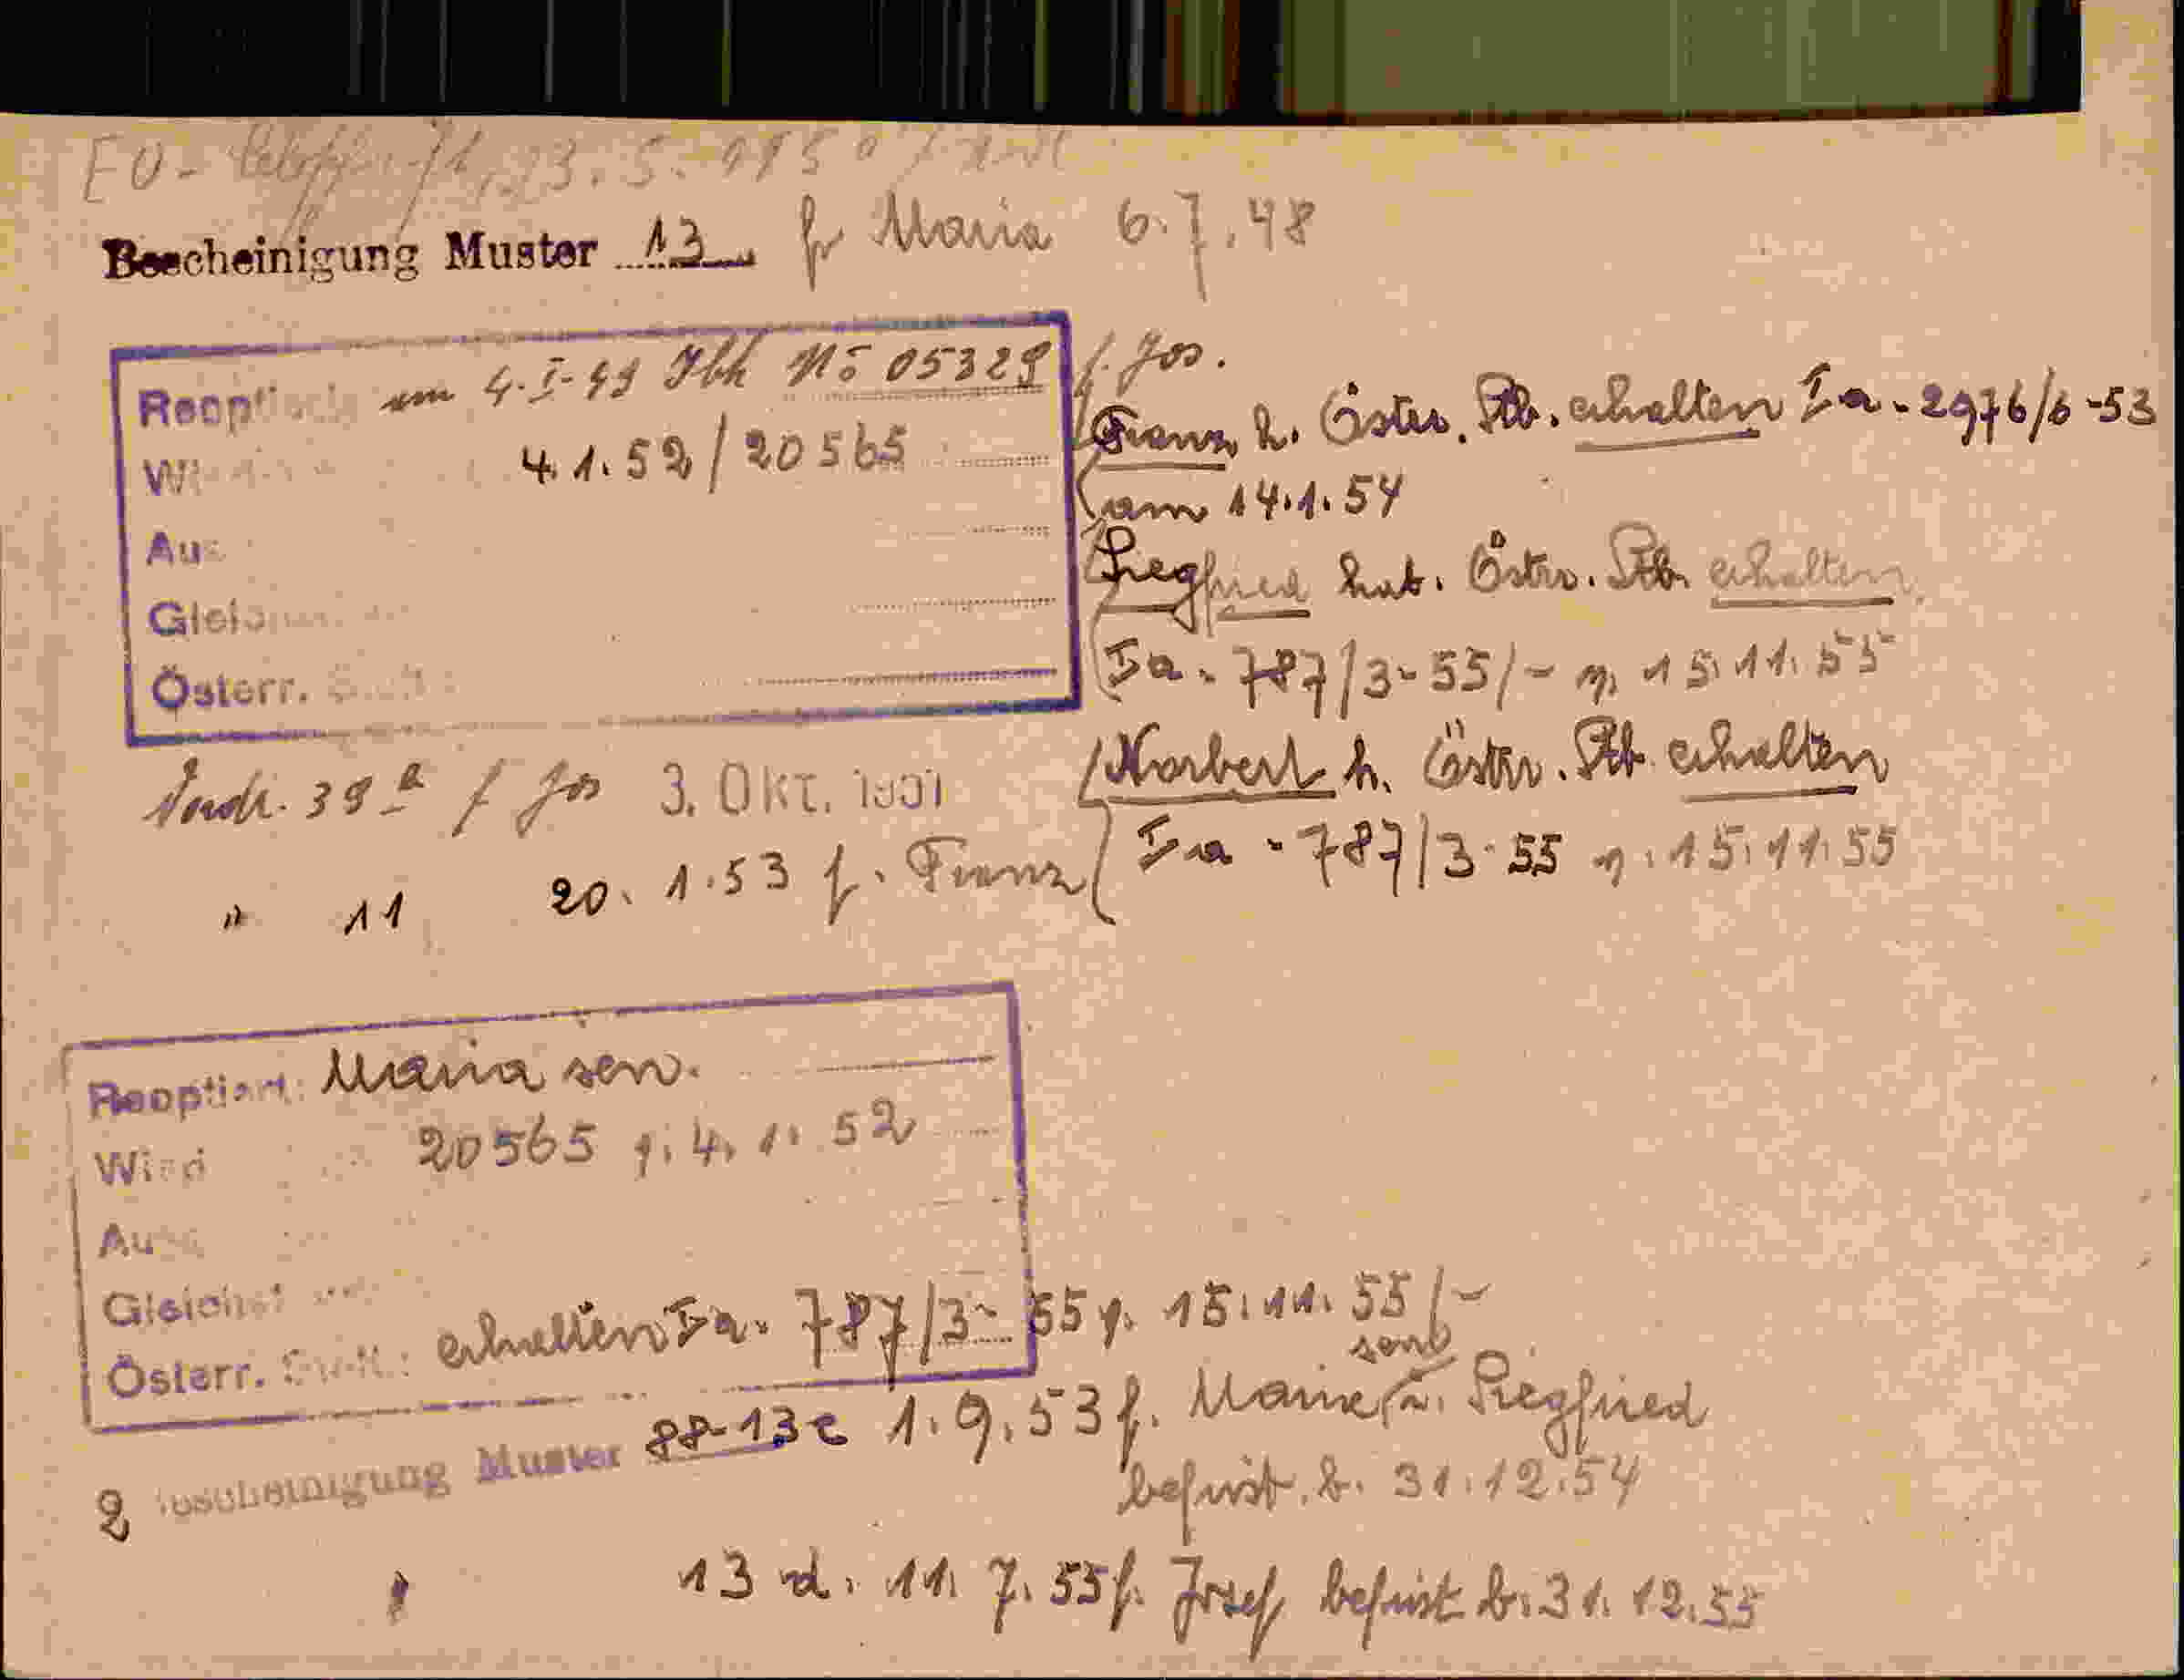 EO- 23.5.1950
Bescheinigung Muster 13 fr Maria 6.7.48
Reopt am 4.I.49 No 05329 f. Jos.
4.1.52/20565
Aus
Gleich
Österr.
Franz h. Öster. Stb. erhalten Ia-2976/6-53
am 14.1.54
Siegfried hat. Östr. Stb. erhalten
Ia-787/3-55/- 15.11.55
Norbert h. Östr. Stb. erhalten
Ia-787/3-55 15.11.55
39a f Jos 3. OKT. 1951
" 11 20.1.53 f. Franz
Reoptiert: Maria sen.
Wird 20565 4.1.52
Aus
Gleichst
Österr. erhalten Ia-787/3-55 15.11.55/-
2 Bescheinigung Muster 88-13c 1.9.53 f. Maria sen. Siegfried
befrist. b. 31.12.54
13 d. 11.7.55 f. Josef befrist b. 31.12.55